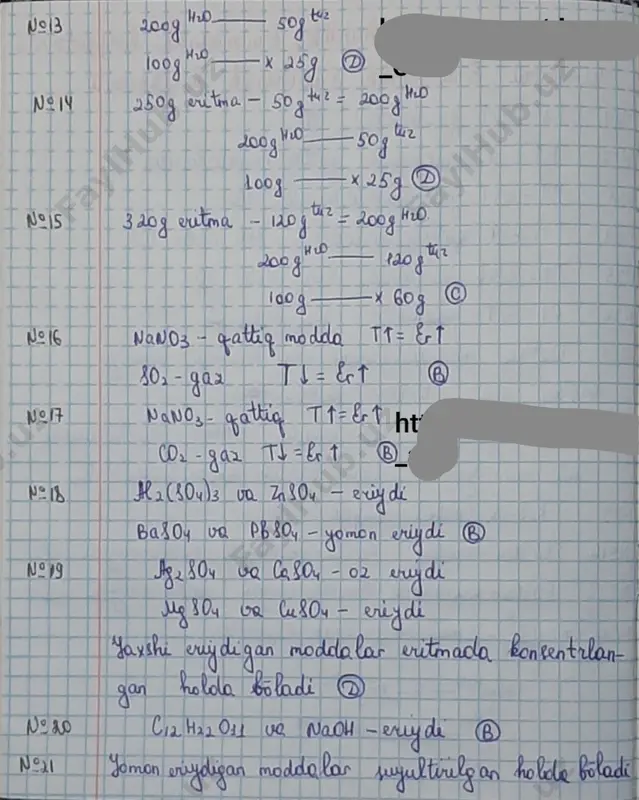 №13 200g H₂O —— 50g tuz
100g H₂O —— x 25g Ⓓ
№14 250g eritma - 50g tuz = 200g H₂O
200g H₂O —— 50g tuz
100g —— x 25g Ⓓ
№15 320g eritma - 120g tuz = 200g H₂O
200g H₂O —— 120g tuz
100g —— x 60g Ⓒ
№16 NaNO₃ - qattiq modda T↑ = Er↑
SO₂ - gaz T↓ = Er↑ Ⓑ
№17 NaNO₃ - qattiq T↑ = Er↑ htt
CO₂ - gaz T↓ = Er↑ Ⓑ
№18 Al₂(SO₄)₃ va ZnSO₄ - eriydi
BaSO₄ va PbSO₄ - yomon eriydi Ⓑ
№19 Ag₂SO₄ va CaSO₄ - oz eriydi
MgSO₄ va CuSO₄ - eriydi
Yaxshi eriydigan moddalar eritmada konsentrlan-
gan holda bo'ladi Ⓓ
№20 C₁₂H₂₂O₁₁ va NaOH - eriydi Ⓑ
№21 Yomon eriydigan moddalar suyultirilgan holda bo'ladi
FaylHub.uz